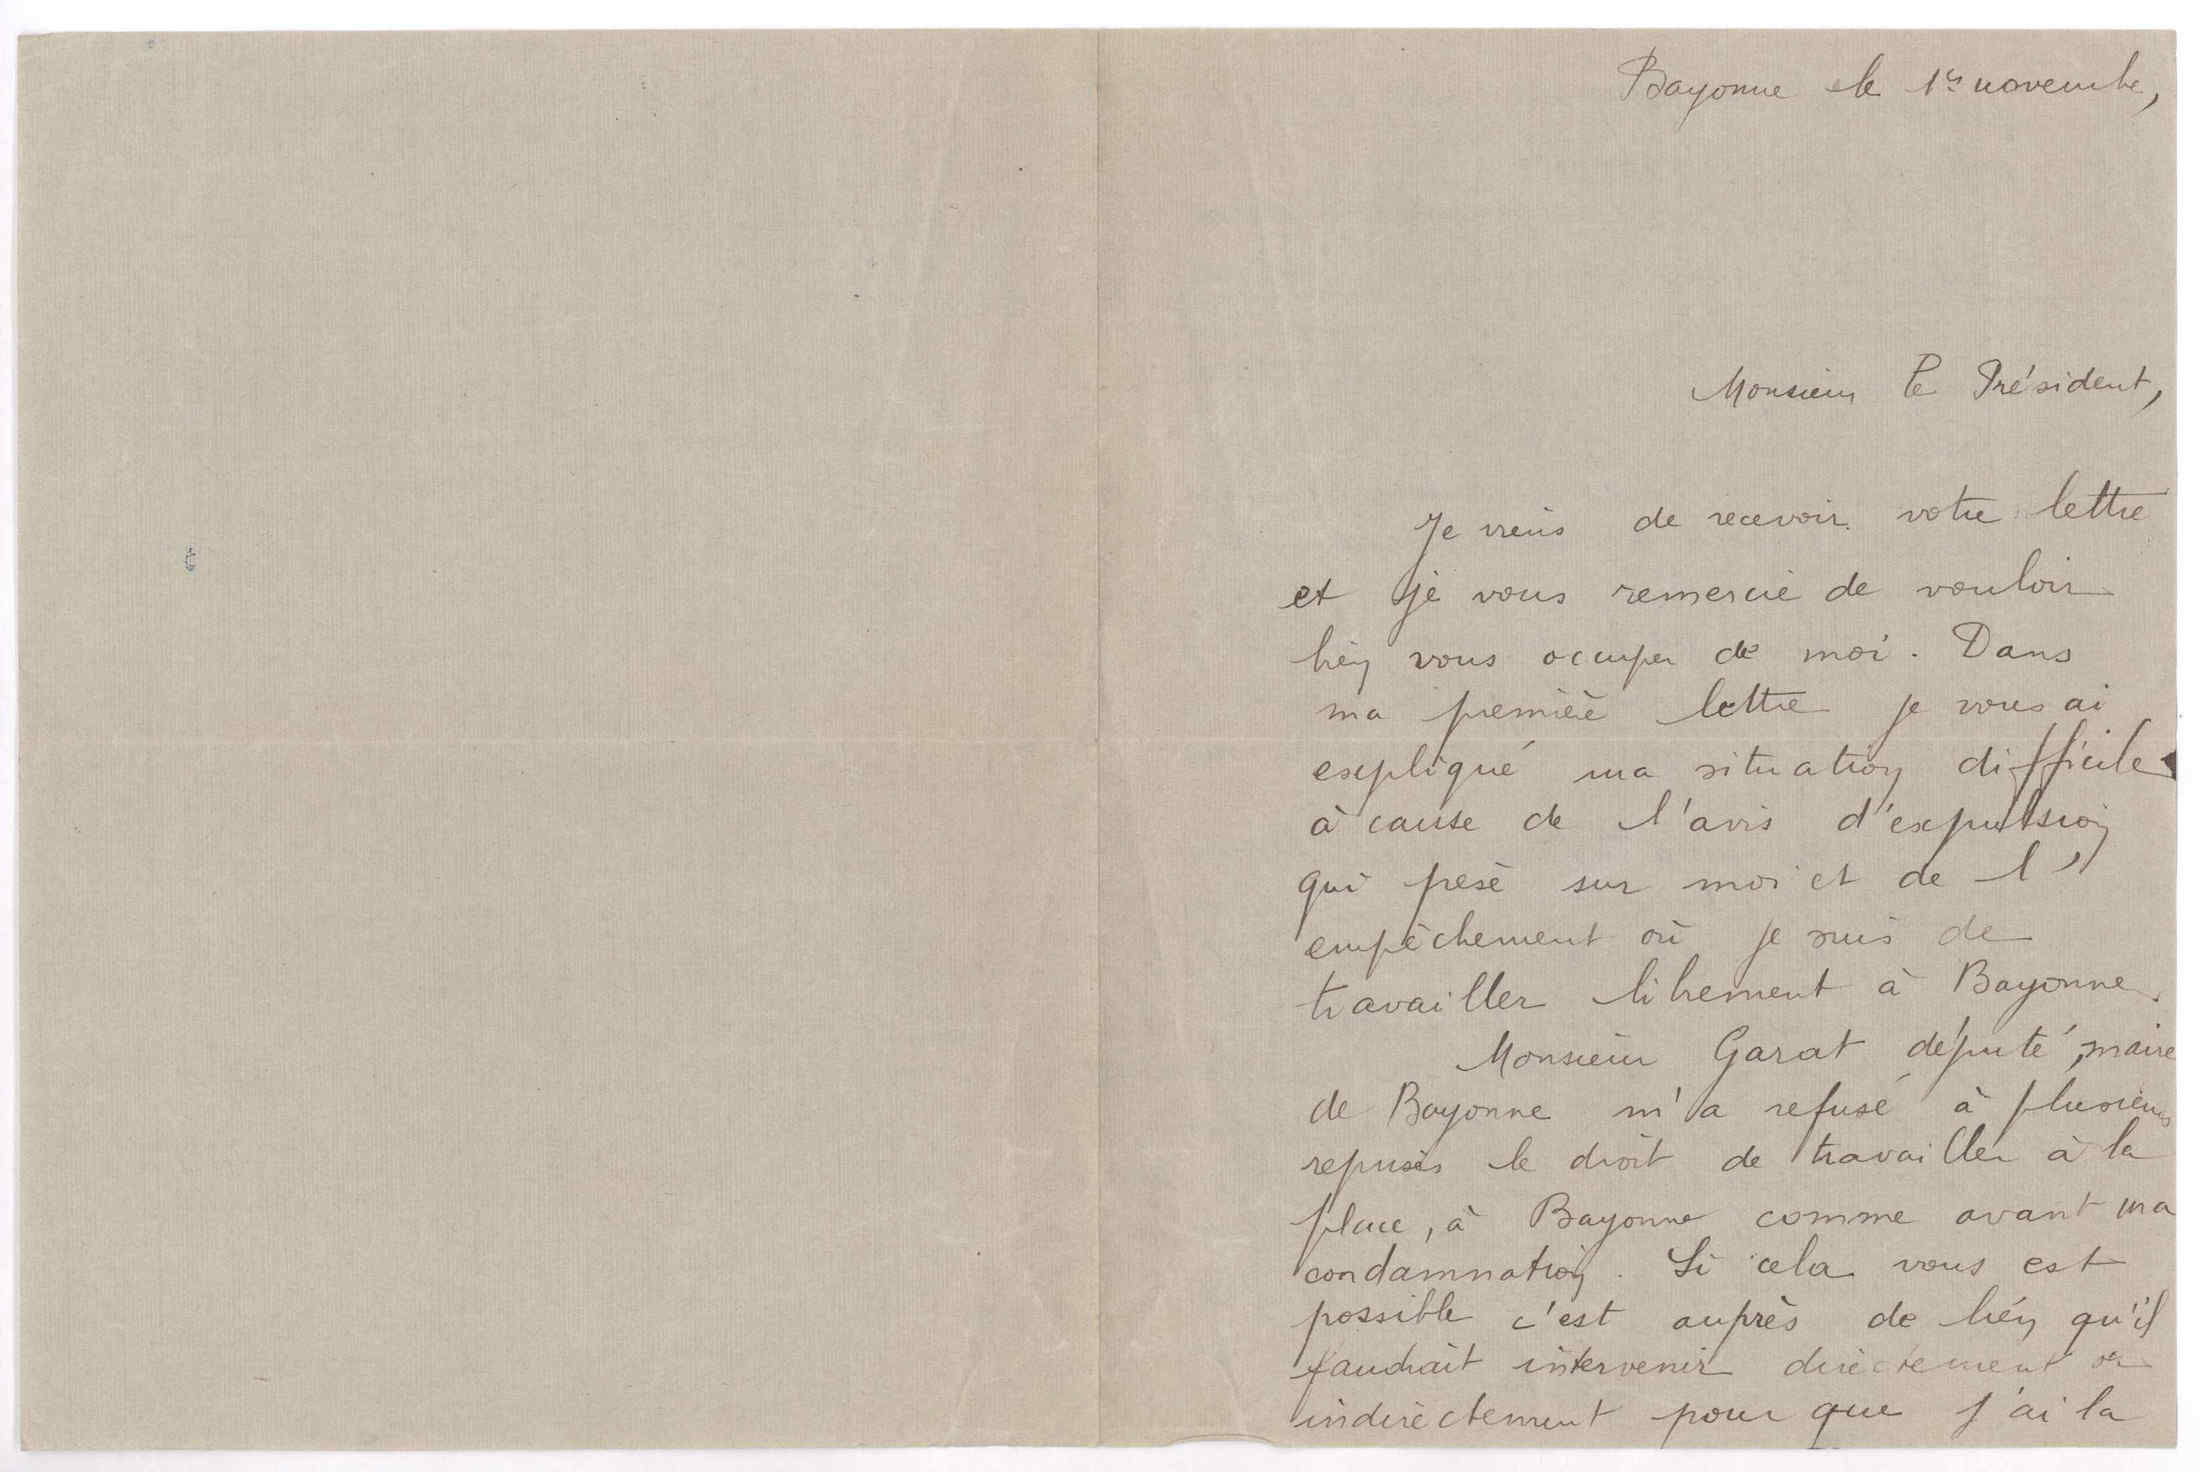 Bayonne le 1er novembre,
Monsieur le Président,
Je viens de recevoir votre lettre
et je vous remercie de vouloir
bien vous occuper de moi. Dans
ma première lettre je vous ai
expliqué ma situation difficile
à cause de l'avis d'expulsion
qui pèse sur moi et de l'
empêchement où je suis de
travailler librement à Bayonne.
Monsieur Garat député, maire
de Bayonne m'a refusé à plusieurs
reprises le droit de travailler à la
place, à Bayonne comme avant ma
condamnation. Si cela vous est
possible c'est auprès de qu'il
faudrait intervenir directement ou
indirectement pour que j'ai la